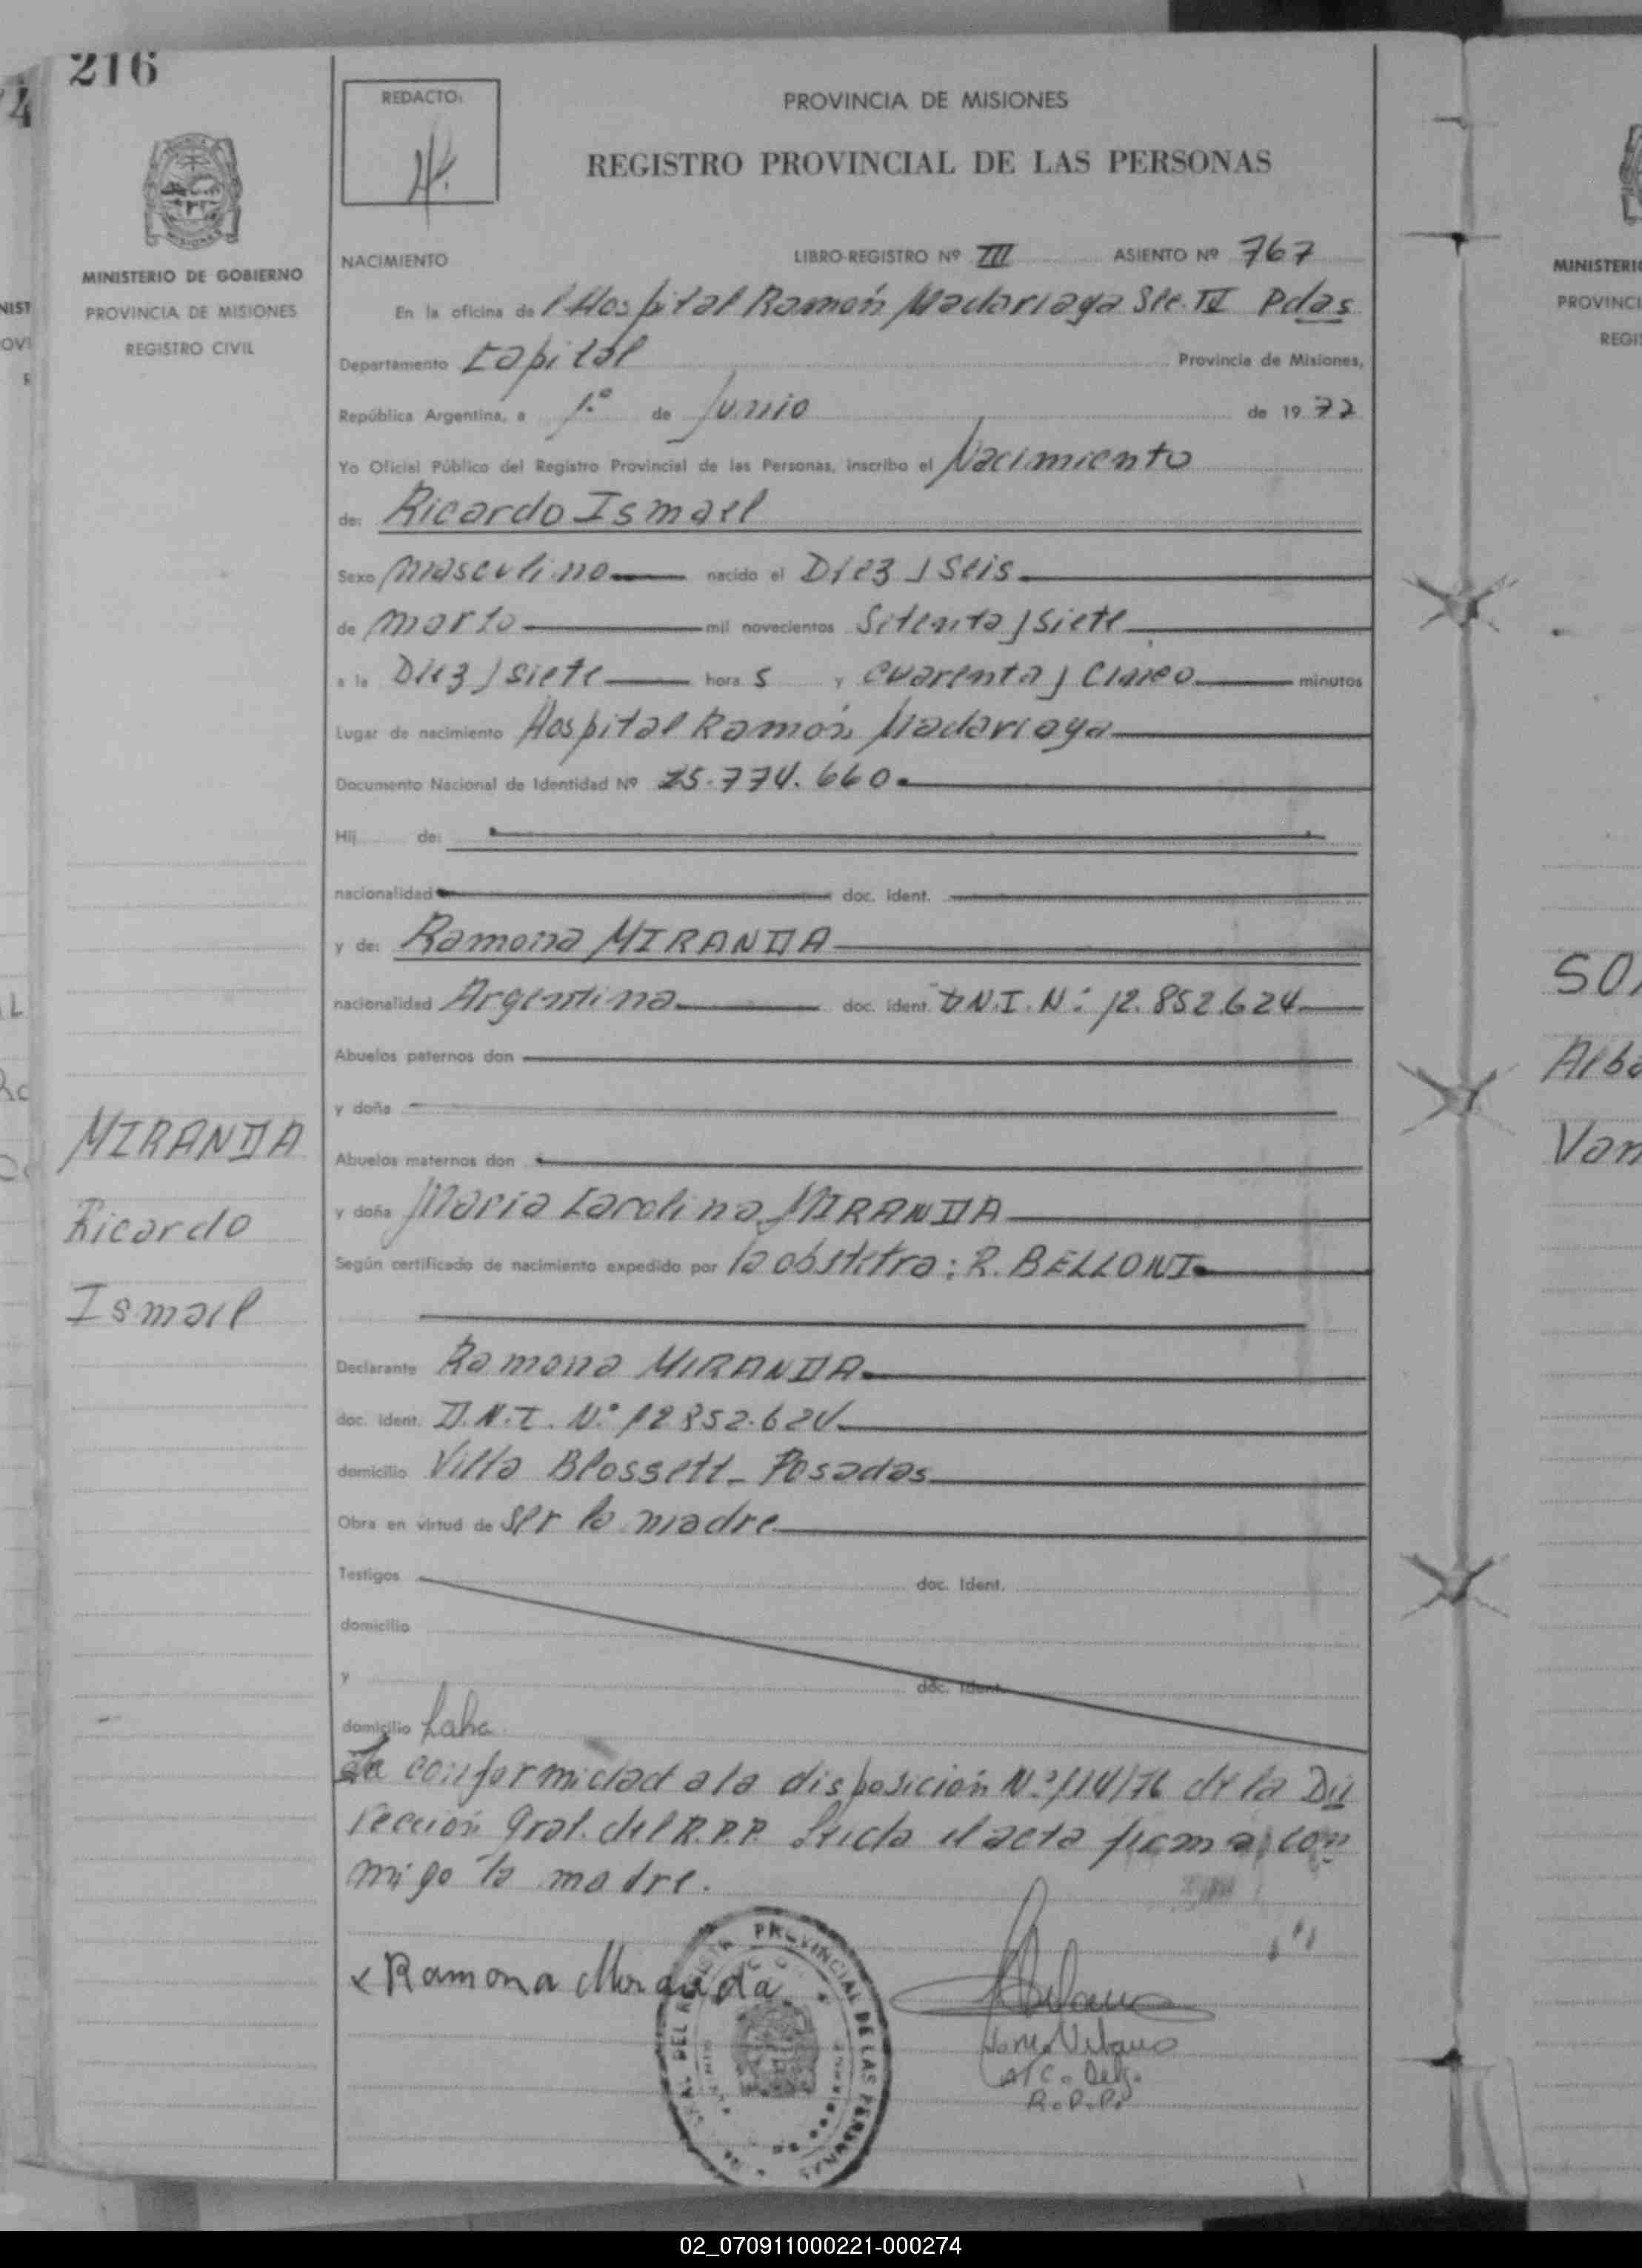 216
REDACTO:
PROVINCIA DE MISIONES
REGISTRO PROVINCIAL DE LAS PERSONAS
MISIONES
MINISTERIO DE GOBIERNO
PROVINCIA DE MISIONES
REGISTRO CIVIL
NACIMIENTO LIBRO-REGISTRO Nº III ASIENTO Nº 767
En la oficina de l Hospital Ramón Madariaga Sec. IV Pdas
Departamento Capital Provincia de Misiones,
República Argentina, a 1º de Junio de 1977
Yo Oficial Público del Registro Provincial de las Personas, inscribo el Nacimiento
de: Ricardo Ismael
Sexo masculino nacido el Diez y Seis
de marzo mil novecientos Setenta y siete
a la Diez y siete hora s y cuarenta y cinco minutos
Lugar de nacimiento Hospital Ramón Madariaga
Documento Nacional de Identidad Nº 25.774.660
Hij de:
nacionalidad doc. ident.
y de: Ramona MIRANDA
nacionalidad Argentina doc. ident. D.N.I. Nº 12.852.624
Abuelos paternos don
y doña
Abuelos maternos don
y doña María Carolina MIRANDA
Según certificado de nacimiento expedido por la obstetra: R. BELLONI
Declarante Ramona MIRANDA
doc. ident. D.N.I. Nº 12852.624
domicilio Villa Blossett - Posadas
Obra en virtud de ser la madre
Testigos doc. Ident.
domicilio
y doc. Ident.
domicilio
De conformidad a la disposición Nº 114/76 de la Di
rección Gral. del R.P.P. Leída el acta firma con
migo la madre.
x Ramona Miranda
PROVINCIAL DE LAS PERSONAS
R.P.P.
MIRANDA
Ricardo
Ismael
MINISTERI
PROVINCI
REGI
Alb
Van
02_070911000221-000274